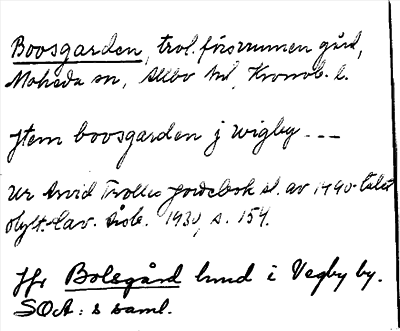 Boosgarden, trol. försvunnen gård,
Moheda sn, Allbo hd, Kronob. l.
Jtem boosgarden j wigby ---
Ur Arvid Trolles Jordebok sl. av 1490-talet
Hylt.-Cav. Årsb. 1930, s. 154.
Jfr Bolsgård lund i Vegby by.
SOA:s saml.